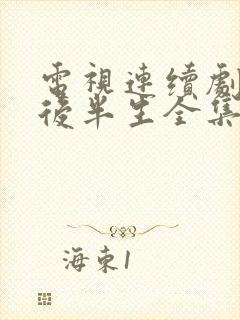 電視連續劇
後半生全集
海東1